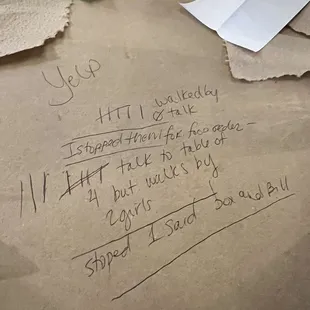 Yelp
walked by
Ø talk
I stopped them for food order -
talk to table of
4 but walks by
2 girls
stoped I said Sox and Bill